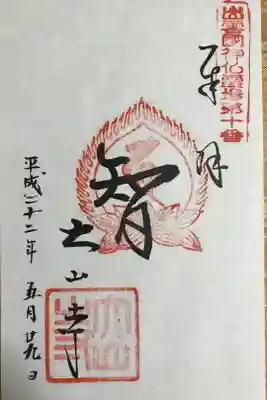 出雲國神仏霊場第十番
奉拝
智
大山寺
平成二十二年 五月廿九日